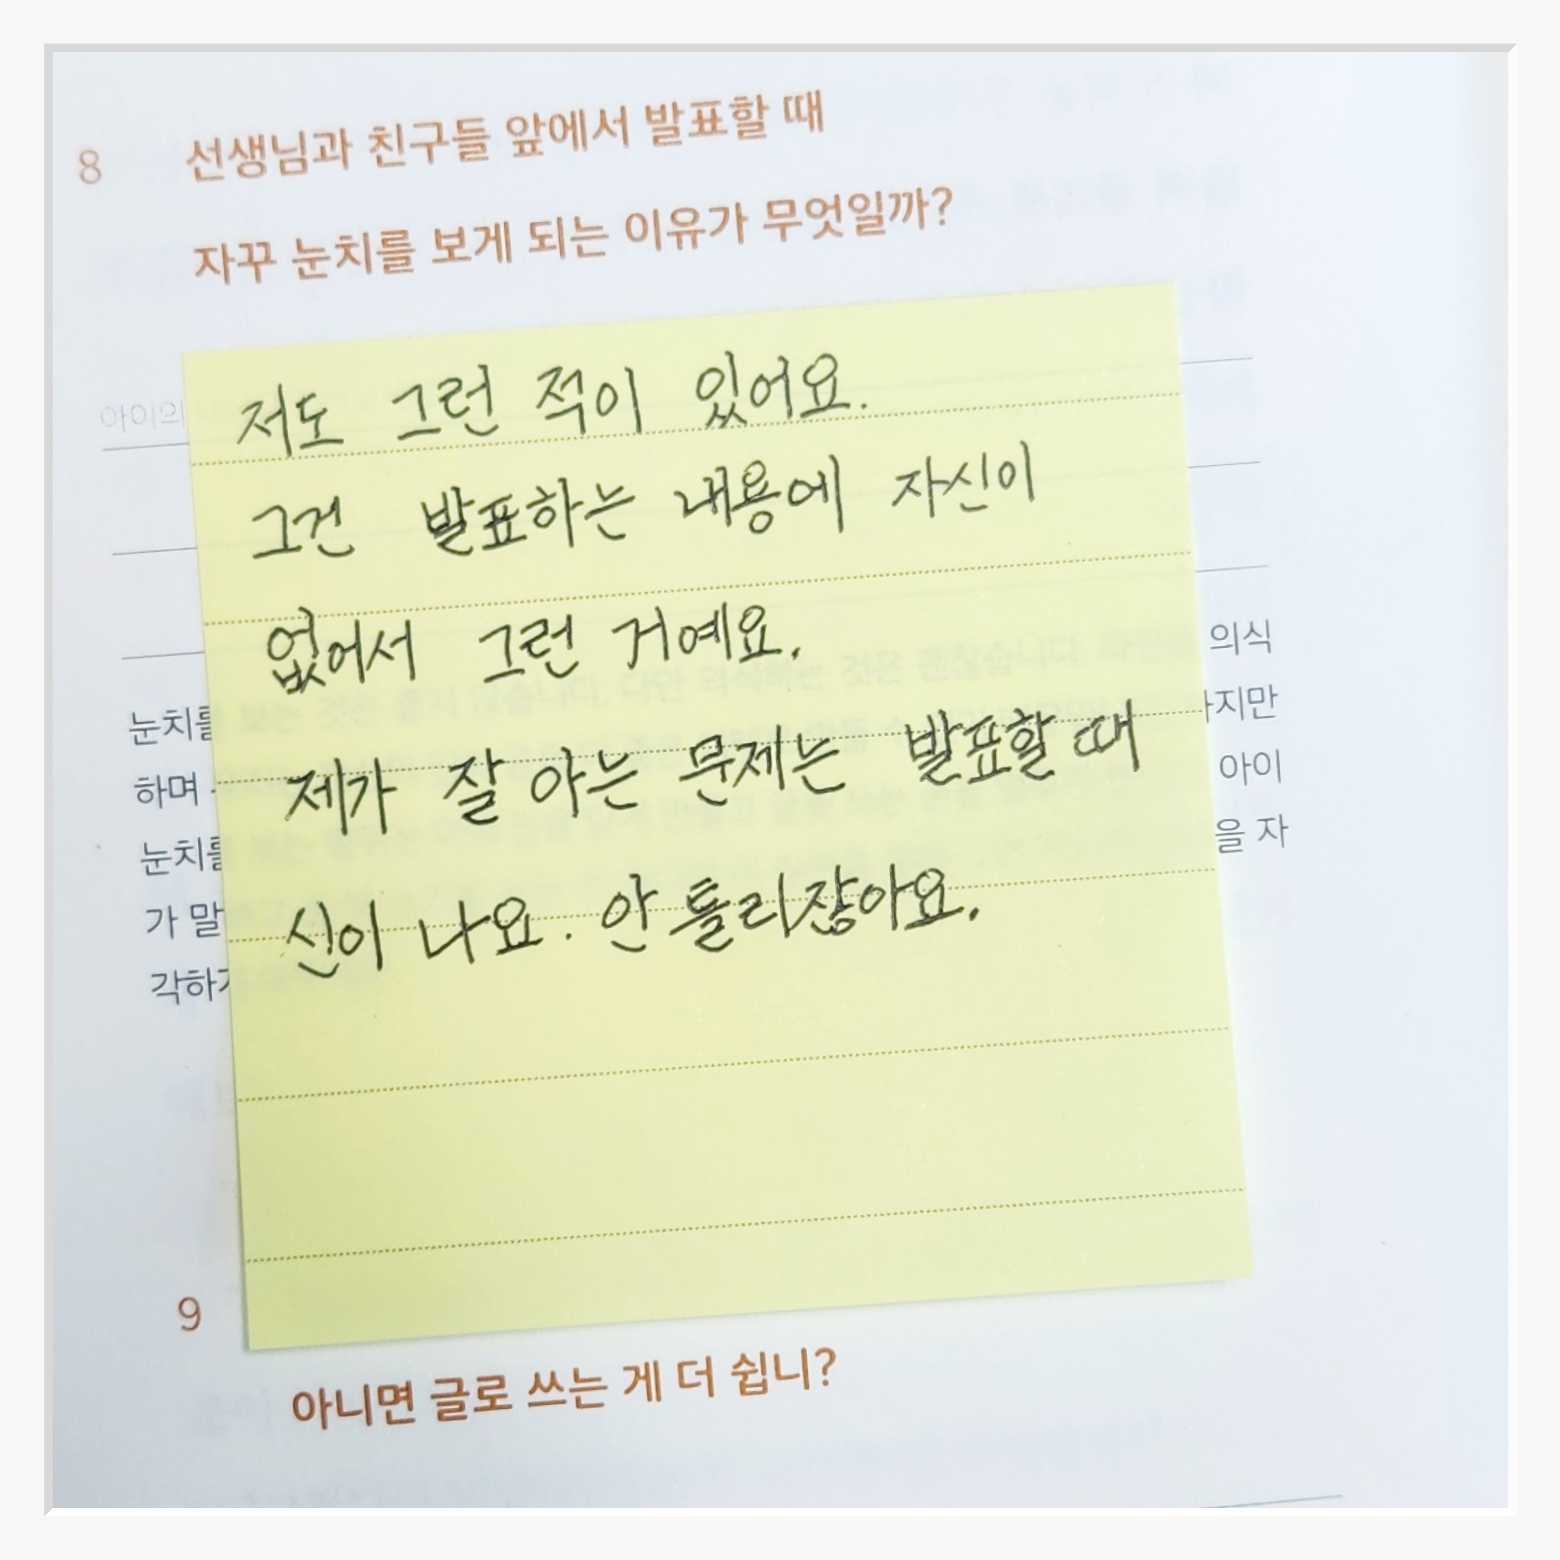 8 선생님과 친구들 앞에서 발표할 때
자꾸 눈치를 보게 되는 이유가 무엇일까?
아이의
저도 그런 적이 있어요.
그건 발표하는 내용에 자신이
없어서 그런 거예요.
제가 잘 아는 문제는 발표할 때
신이 나요. 안 틀리잖아요.
의식
눈치를
지만
하며
아이
눈치를
을 자
가 말
각하
9
아니면 글로 쓰는 게 더 쉽니?